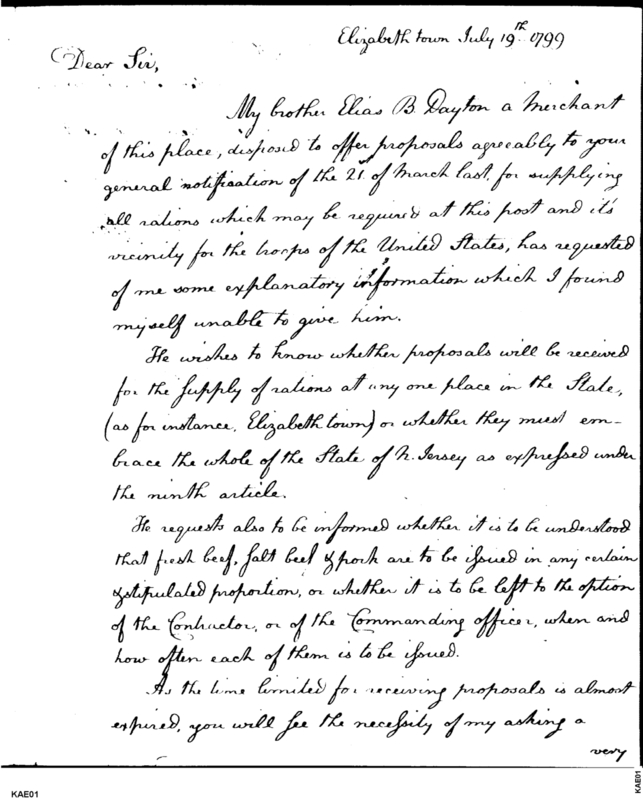 Elizabeth town July 19th 1799
Dear Sir,
My brother Elias B. Dayton a Merchant
of this place, disposed to offer proposals agreeably to your
general notification of the 21st of March last, for supplying
all rations which may be required at this post and it's
vicinity for the troops of the United States, has requested
of me some explanatory information which I found
myself unable to give him.
He wishes to know whether proposals will be received
for the supply of rations at any one place in the State,
(as for instance, Elizabeth town) or whether they must em-
brace the whole of the State of N. Jersey as expressed under
the ninth article.
He requests also to be informed whether it is to be understood
that fresh beef, salt beef & pork are to be issued in any certain
& stipulated proportion, or whether it is to be left to the option
of the Contractor, or of the Commanding officer, when and
how often each of them is to be issued.
As the time limited for receiving proposals is almost
expired, you will see the necessity of my asking a
very
KAE01
KAE01